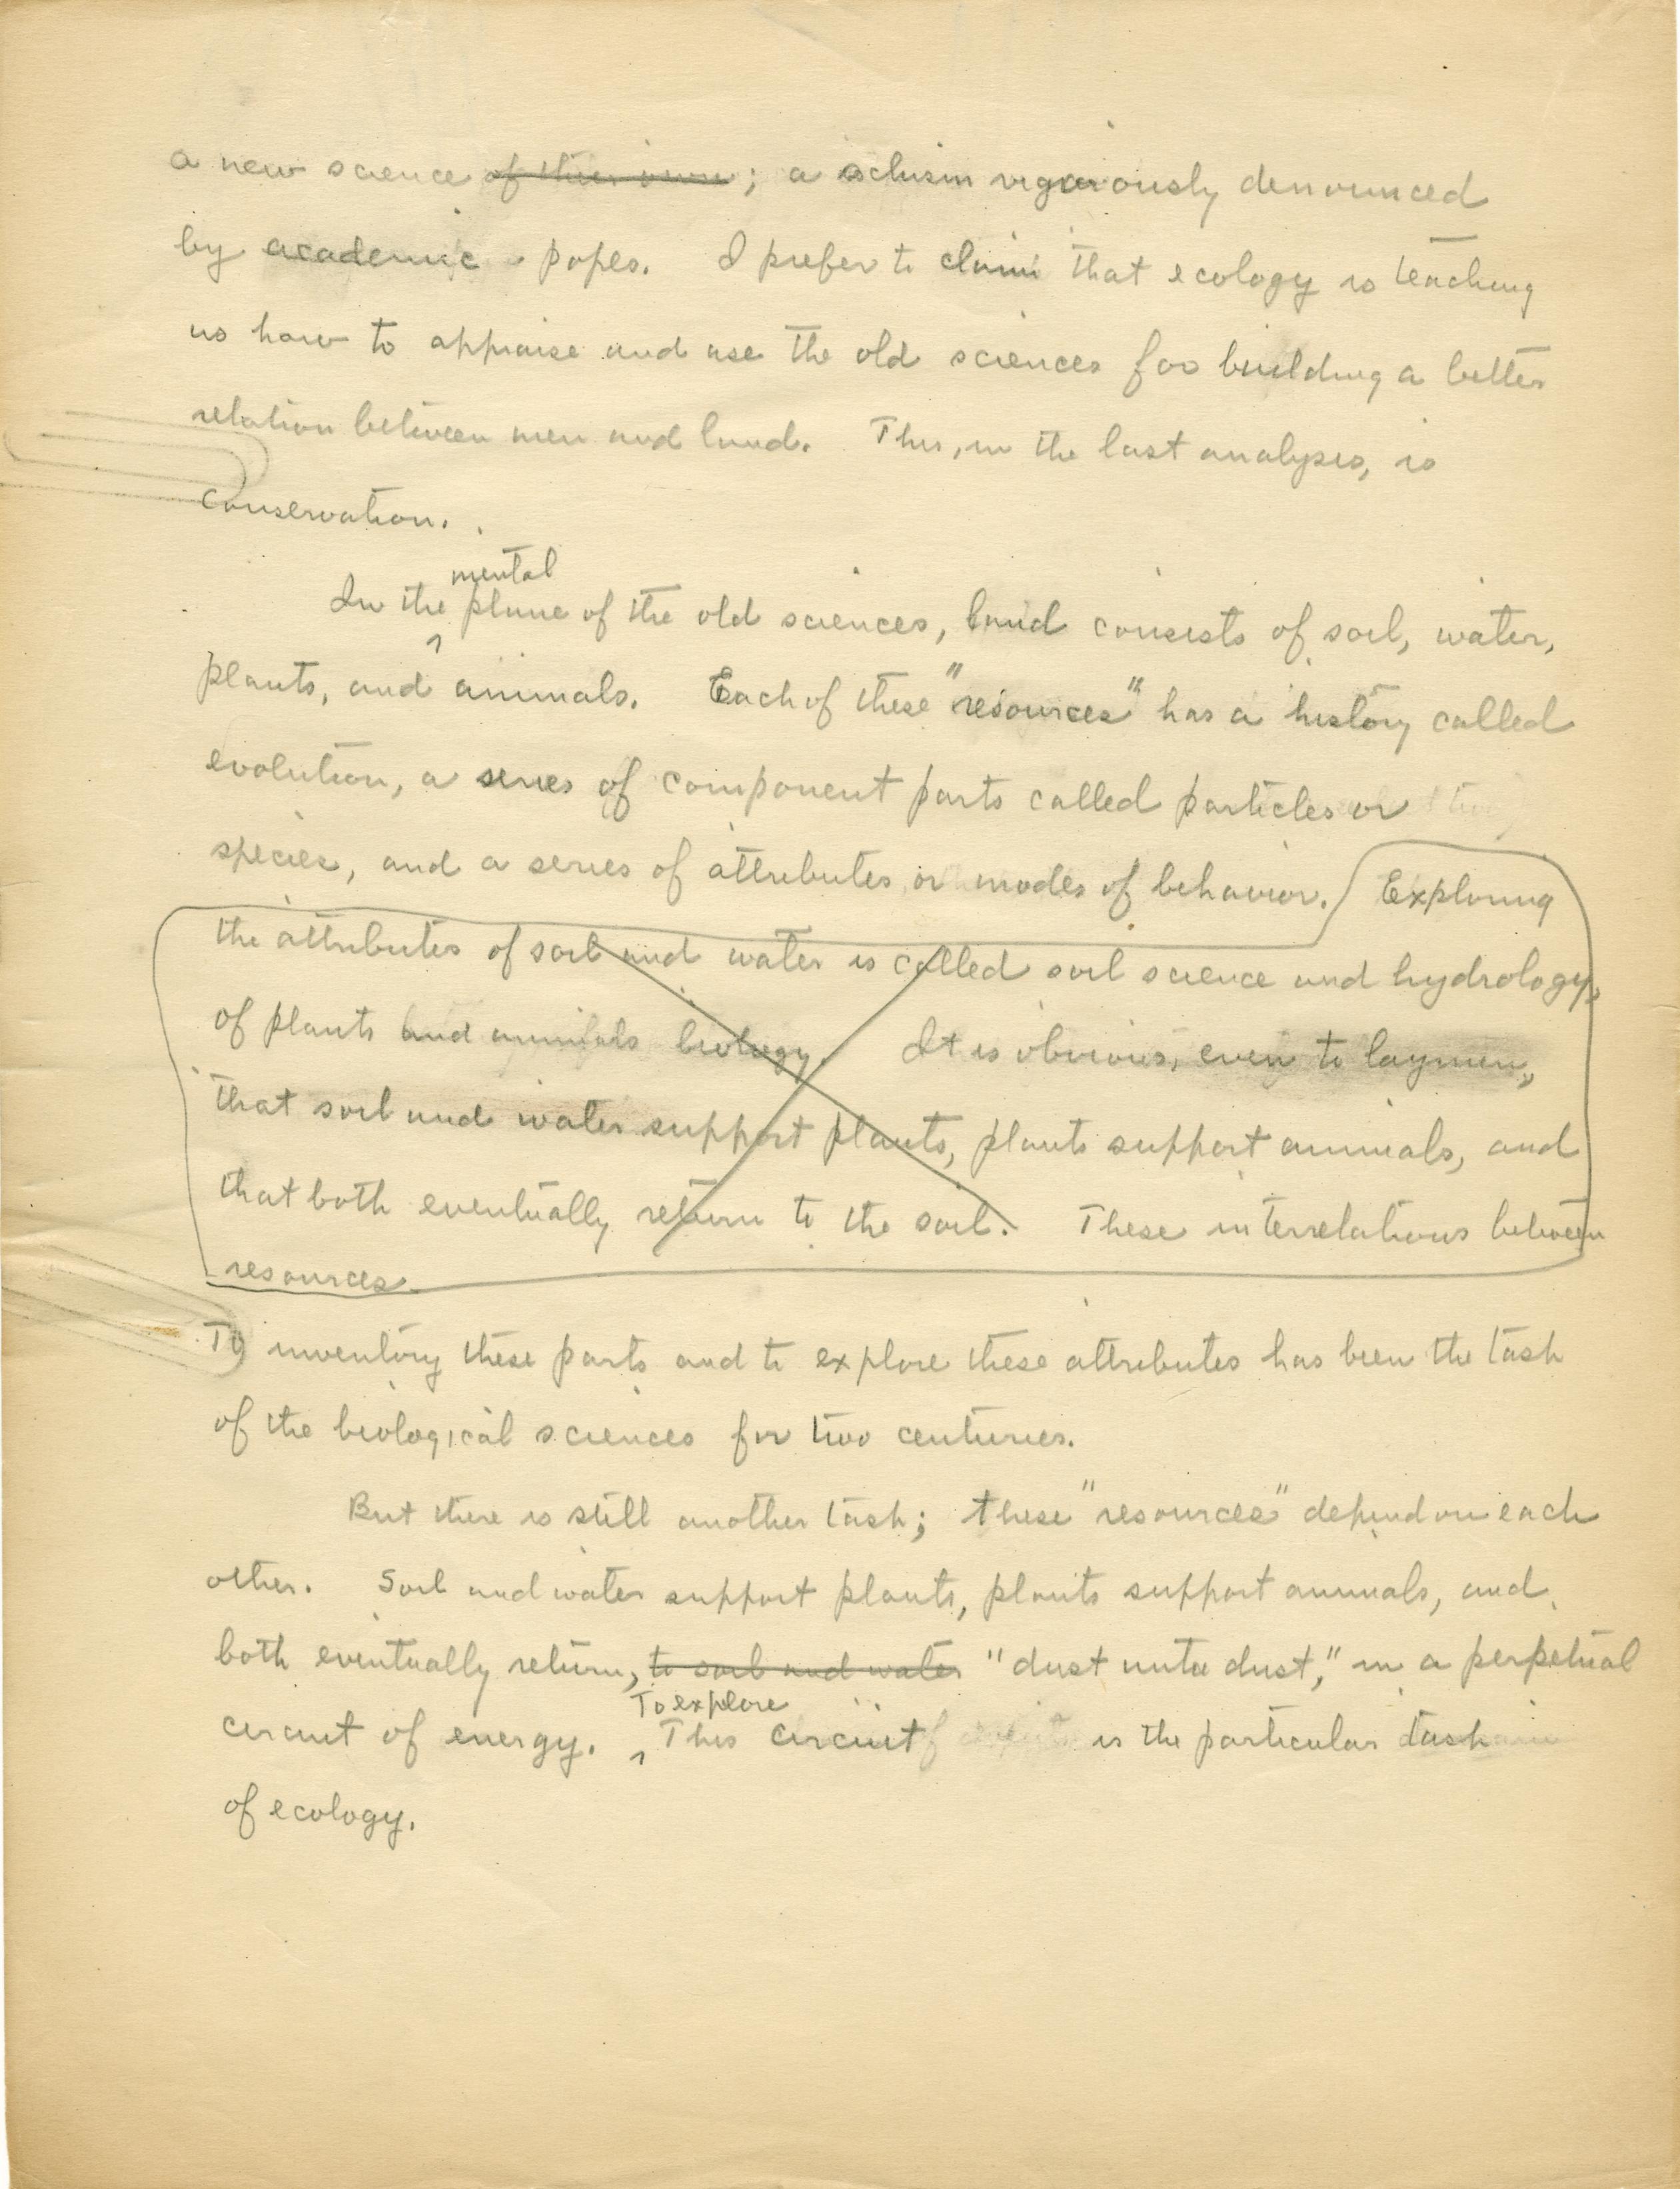 a new science of their own; a schism vigorously denounced
by academic popes. I prefer to claim that ecology is teaching
us how to appraise and use the old sciences for building a better
relation between men and land. This, in the last analysis, is
conservation.
mental
In the plane of the old sciences, land consists of soil, water,
plants, and animals. Each of these "resources" has a history called
evolution, a series of component parts called particles or
species, and a series of attributes or modes of behavior. Exploring
the attributes of soil and water is called soil science and hydrology,
of plants and animals biology. It is obvious, even to laymen,
that soil and water support plants, plants support animals, and
that both eventually return to the soil. These interrelations between
resources
To inventory these parts and to explore these attributes has been the task
of the biological sciences for two centuries.
But there is still another task; these "resources" depend on each
other. Soil and water support plants, plants support animals, and
both eventually return, to soil and water "dust unto dust," in a perpetual
To explore
circuit of energy. This circuit is the particular task
of ecology.